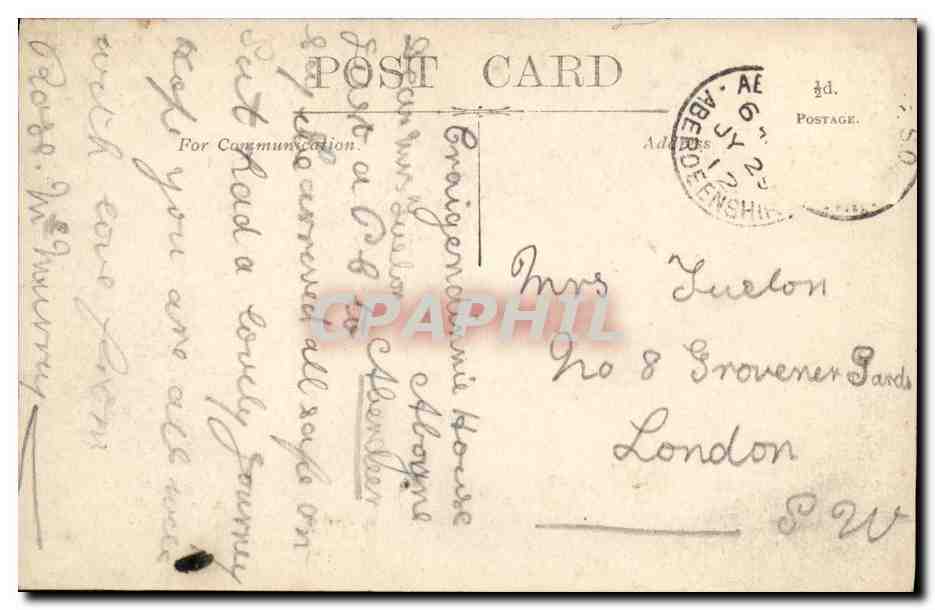 POST CARD
For Communication.
Address
½d.
POSTAGE.
ABERDEENSHIRE
6
JY 2
12
50
Craigendinnie House
Aboyne
Aberdeen
Dear Mrs Juelon
Just a P C to
say the arrived all safe on
Sat had a lovely journey
hope you are all well
with love from
Ross. McMurray
Mrs Juelon
No 8 Grovener Gards
London
S W
CPAPHIL